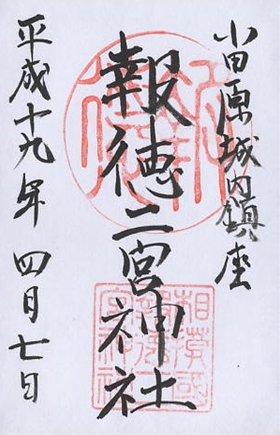 小田原城内鎮座
報徳二宮神社
平成十九年 四月七日
相模國
報徳二
宮神社